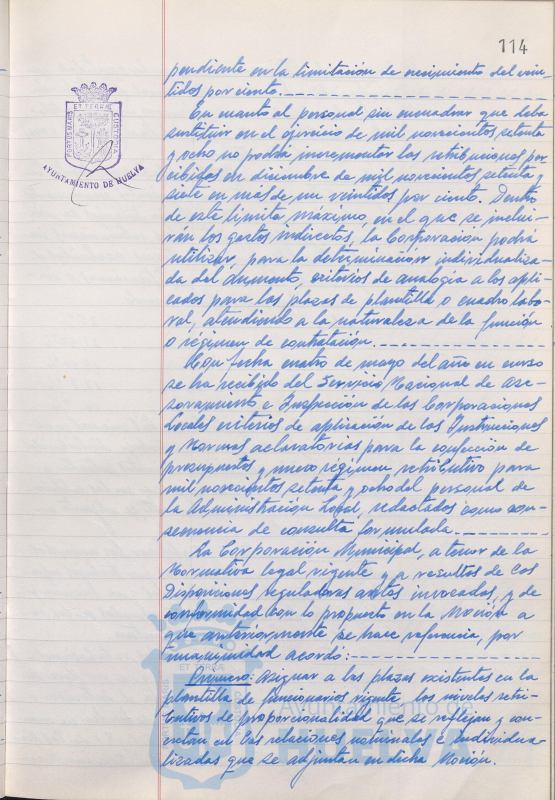 114
pendiente en la limitación de crecimiento del vein-
tidos por ciento.
En cuanto al personal sin encuadrar que deba
sustituir en el ejercicio de mil novecientos setenta
y ocho no podrá incrementar las retribuciones per-
cibidas en diciembre de mil novecientos setenta y
siete en más de un veintidos por ciento. Dentro
de este límite máximo, en el que se inclui-
rán los gastos indirectos, la Corporación podrá
utilizar, para la determinación individualiza-
da del aumento, criterios de analogía a los apli-
cados para las plazas de plantilla o cuadro labo-
ral, atendiendo a la naturaleza de la función
o régimen de contratación.
Con fecha cuatro de mayo del año en curso
se ha recibido del Servicio Nacional de Ase-
soramiento e Inspección de las Corporaciones
Locales criterios de aplicación de las Instrucciones
y Normas aclaratorias para la confección de
presupuestos y nuevo régimen retributivo para
mil novecientos setenta y ocho del personal de
la Administración Local, redactados como con-
secuencia de consulta formulada.
La Corporación Municipal, a tenor de la
Normativa legal vigente y a resultas de las
Disposiciones reguladoras antes invocadas, y de
conformidad con lo propuesto en la Moción a
que anteriormente se hace referencia, por
unanimidad acordó:
Primero: Asignar a las plazas existentes en la
plantilla de funcionarios vigente los niveles retri-
butivos de proporcionalidad que se reflejan y con-
cretan en las relaciones nominales e individua-
lizadas que se adjuntan en dicha Moción.
PORTUS MARIS ET TERRAE CUSTODIA
AYUNTAMIENTO DE HUELVA
Ayuntamiento de
HUELVA